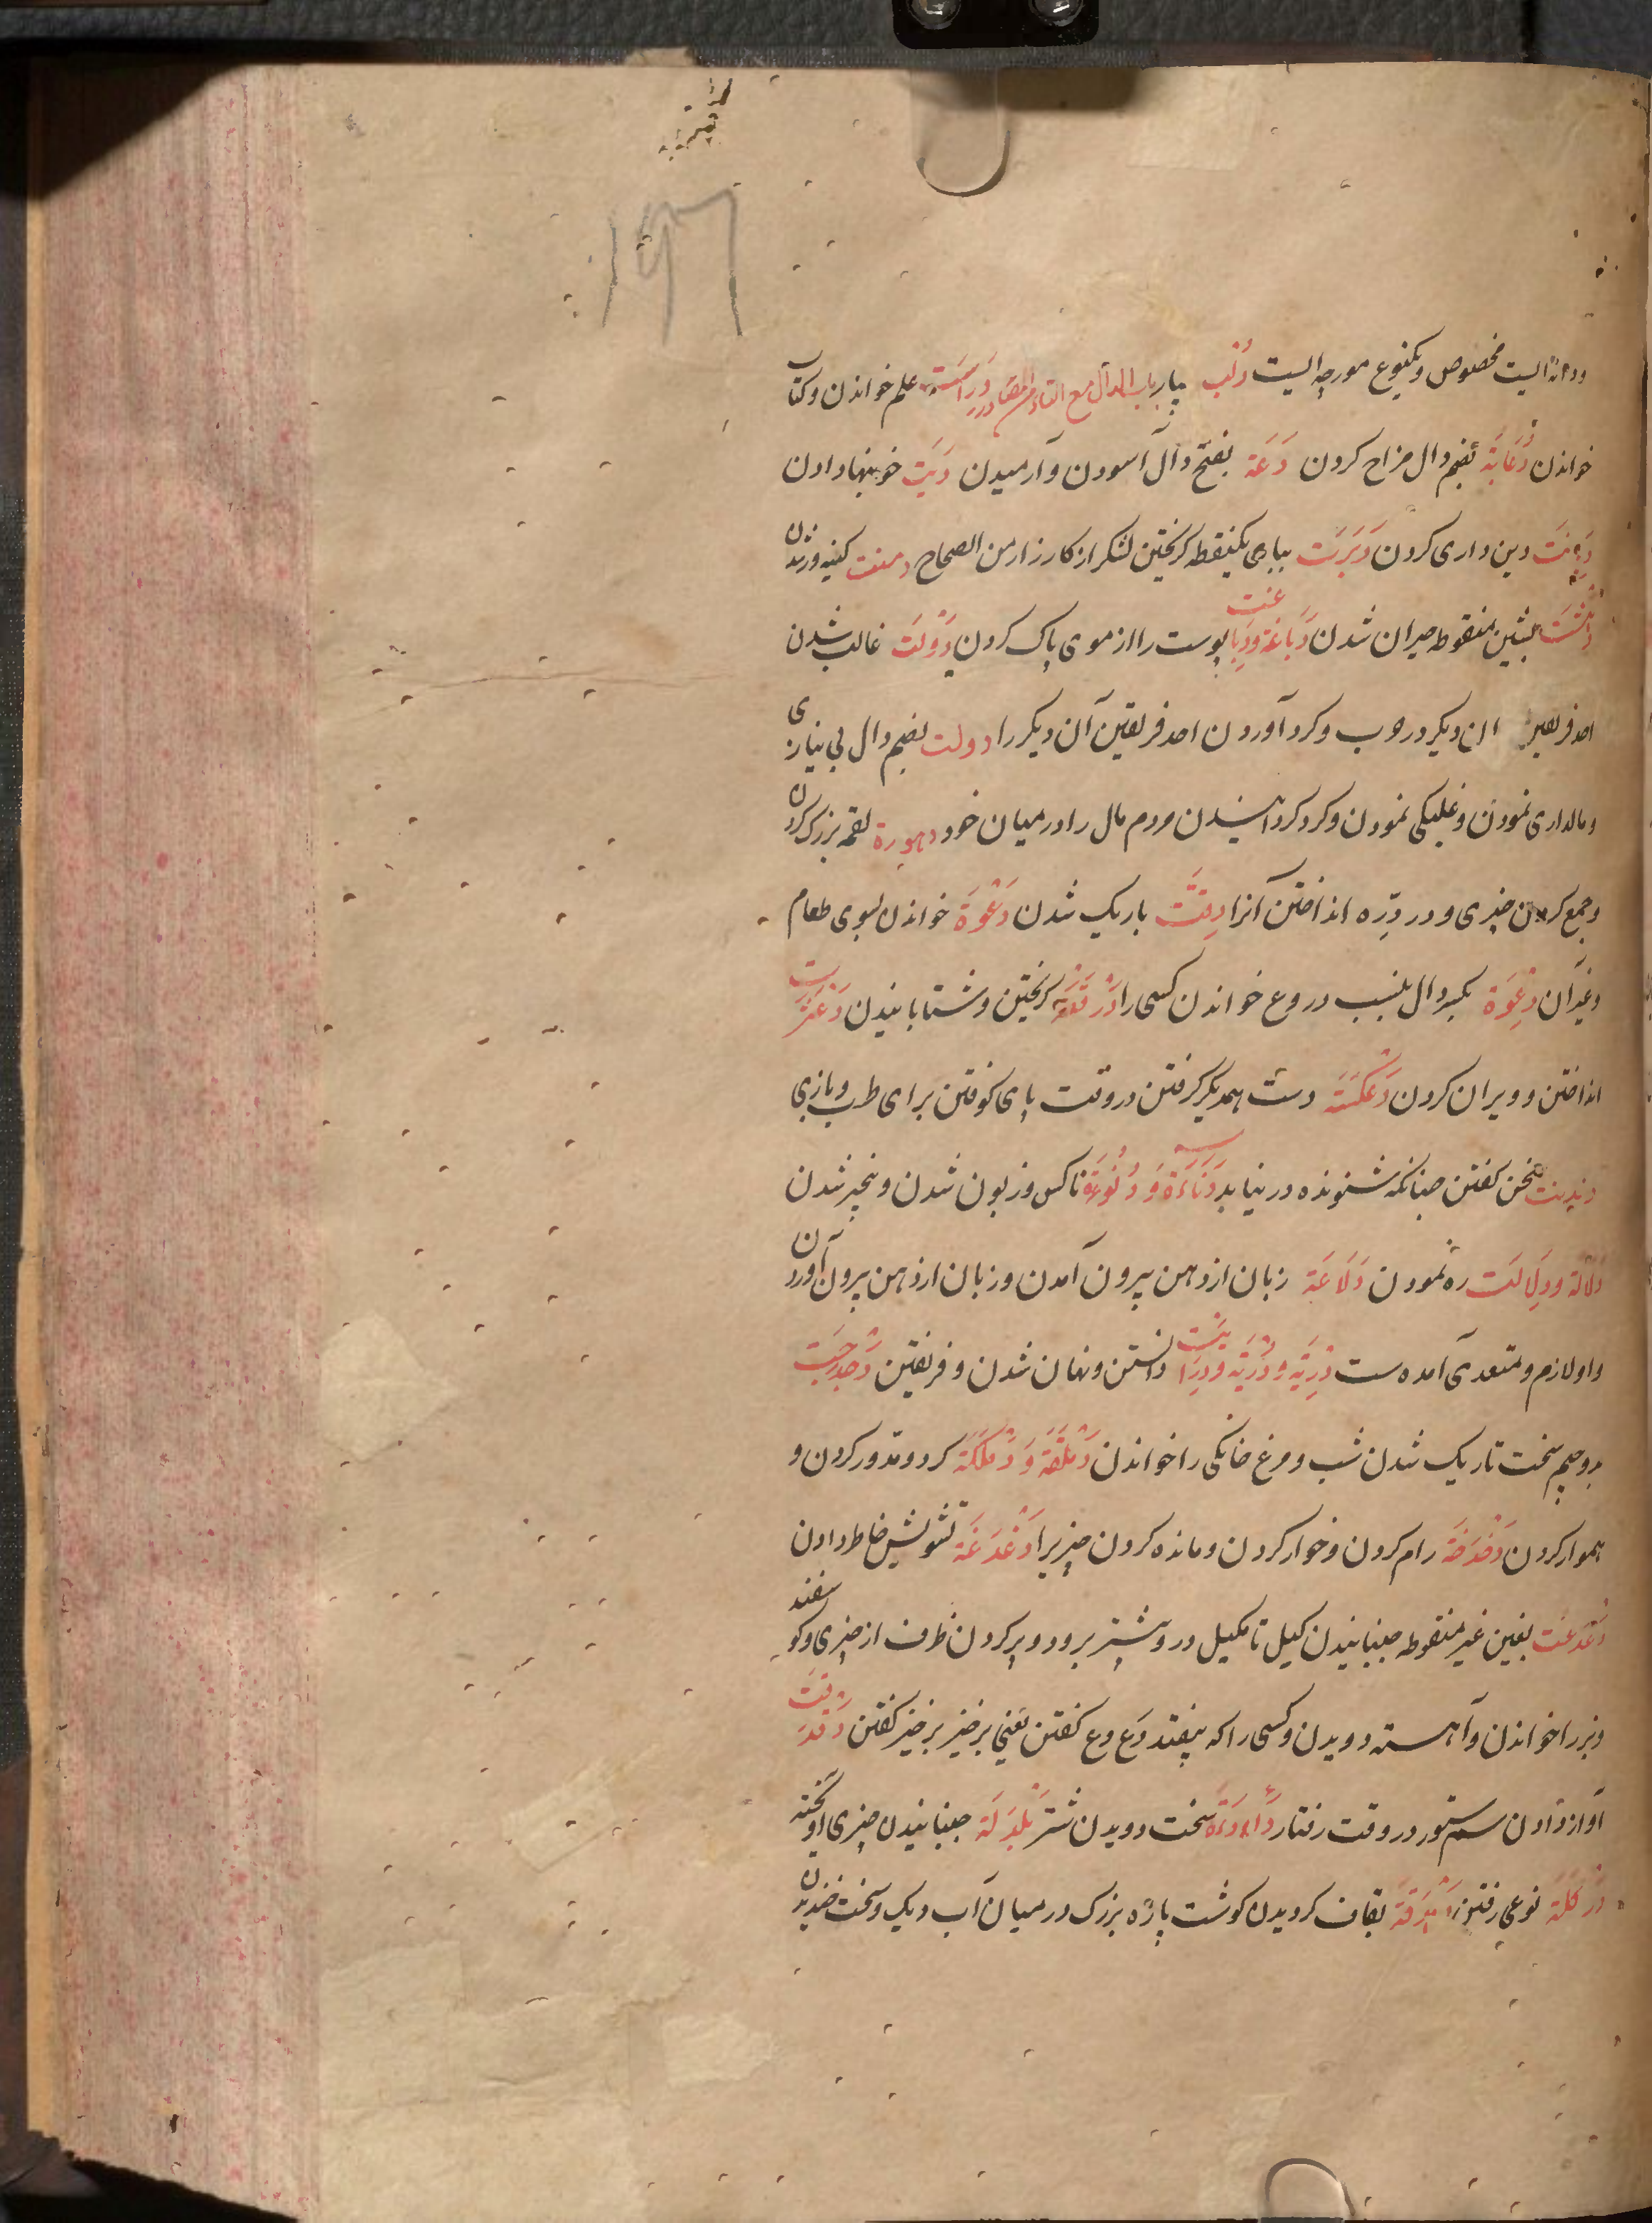 ودانه ایست مخصوص ویکنوع مورچه ایست دُئب باب الدال مع التاء من المصادر دِرَاسَت علم خواندن وکتاب
خواندن دُعَابَة بضم دال مزاح کردن دَعَة بفتح دال آسودن وآرمیدن دِیَت خونبها دادن
دِیَانَت دین داری کردن دَبَرَت ببای یکنقطه کریختن لشکر از کارزار من الصحاح دمنت کینه ورزیدن
دَهْشَت بشین منقوطه حیران شدن دَبَاغَة ودِبَاغت پوست را از موی پاک کردن دَوْلَت غالب شدن
احد فریقین ان دیکر در حرب وکرد آوردن احد فریقین آن دیکر را دولت بضم دال بی نیازی
ومالداری نمودن وغلبکی نمودن وکرد کردانیدن مردم مال را درمیان خود دهورة لقمه بزرک کردن
وجمع کردن چیزی ودر درّه انداختن آنرا دِقَّت باریک شدن دَعْوَة خواندن بسوی طعام
وغیرآن دِعْوَة بکسر دال بنسب دروغ خواندن کسی را دَرْقَعَة کریختن وشتابانیدن دَعْثَرَت
انداختن وویران کردن دَعْکَسَة دست همدیکر کرفتن در وقت پای کوفتن برای طرب وبازی
دندنت سخن کفتن چنانکه شنونده در نیابد دَنَاءَة وَ دُنُوءَة ناکس وزبون شدن وبیخیر شدن
دَلَالَة ودِلَالَت ره نمودن دَلَاعَة زبان از دهن بیرون آمدن وزبان از دهن بیرون آوردن
واو لازم ومتعدی آمده ست دِرْیَة ودُرْیَة ودِرَایَت دانستن ونهان شدن وفریفتن دَجْدَجَت
بدو جیم سخت تاریک شدن شب ومرغ خانکی را خواندن دَمْلَقَة وَ دَمْلَکَة کرد ومدور کردن و
هموار کردن دَخْدَخَة رام کردن وخوار کردن ومانده کردن چیزیرا دَغْدَغَة تشویش خاطر دادن
دَعْدَعَت بعین غیر منقوطه جنبانیدن کیل تا مکیل در وبیشتر برود وپر کردن ظرف از چیزی وکوسفند
وبز را خواندن وآهسته دویدن وکسی را که بیفتد دَع دع کفتن یعنی برخیز برخیز کفتن دَقْدَقَت
آواز دادن سم ستور در وقت رفتار دَأْدَأَة سخت دویدن شتر دَلْدَلَة جنبانیدن چیزی آویخته
دَرْکَلَة نوعی رفتن دَهْدَقَة بقاف کردیدن کوشت پاره بزرک درمیان آب دیک وسخت خندیدن